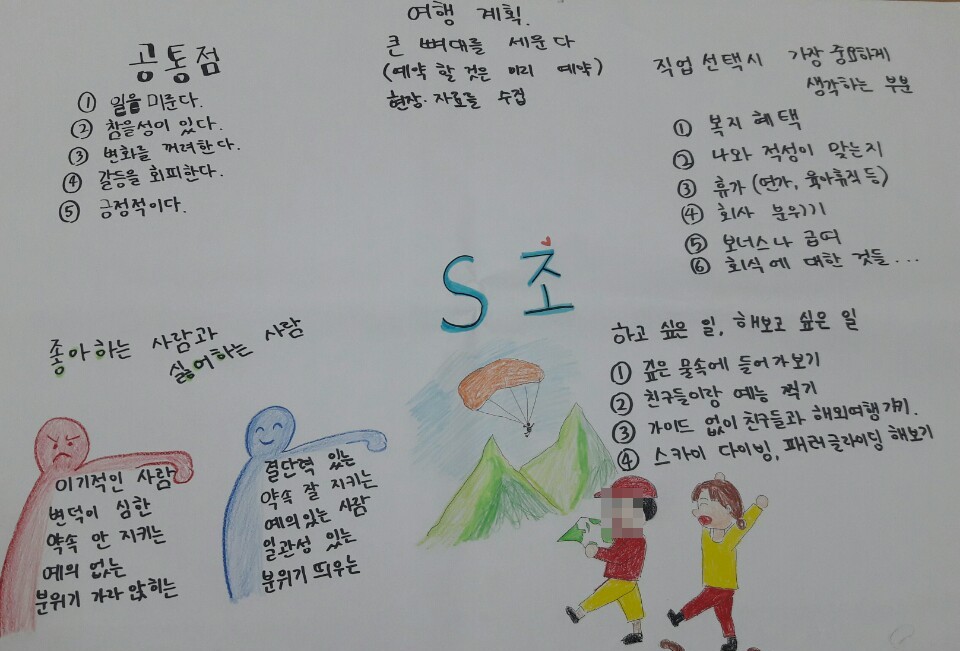 여행 계획.
큰 뼈대를 세운다
(예약 할것은 미리 예약)
현장·자료를 수집
공통점
① 일을 미룬다.
② 참을성이 있다.
③ 변화를 꺼려한다.
④ 갈등을 회피한다.
⑤ 긍정적이다.
직업 선택시 가장 중요하게
생각하는 부분
① 복지 혜택
② 나와 적성이 맞는지
③ 휴가 (연가, 육아휴직 등)
④ 회사 분위기
⑤ 보너스나 급여
⑥ 회식에 대한 것들...
S조
좋아하는 사람과
싫어하는 사람
이기적인 사람
변덕이 심한
약속 안 지키는
예의 없는
분위기 가라 앉히는
결단력 있는
약속 잘 지키는
예의있는 사람
일관성 있는
분위기 띄우는
하고 싶은 일, 해보고 싶은 일
① 깊은 물속에 들어가보기
② 친구들이랑 예능 찍기
③ 가이드 없이 친구들과 해외여행 가기.
④ 스카이 다이빙, 패러글라이딩 해보기